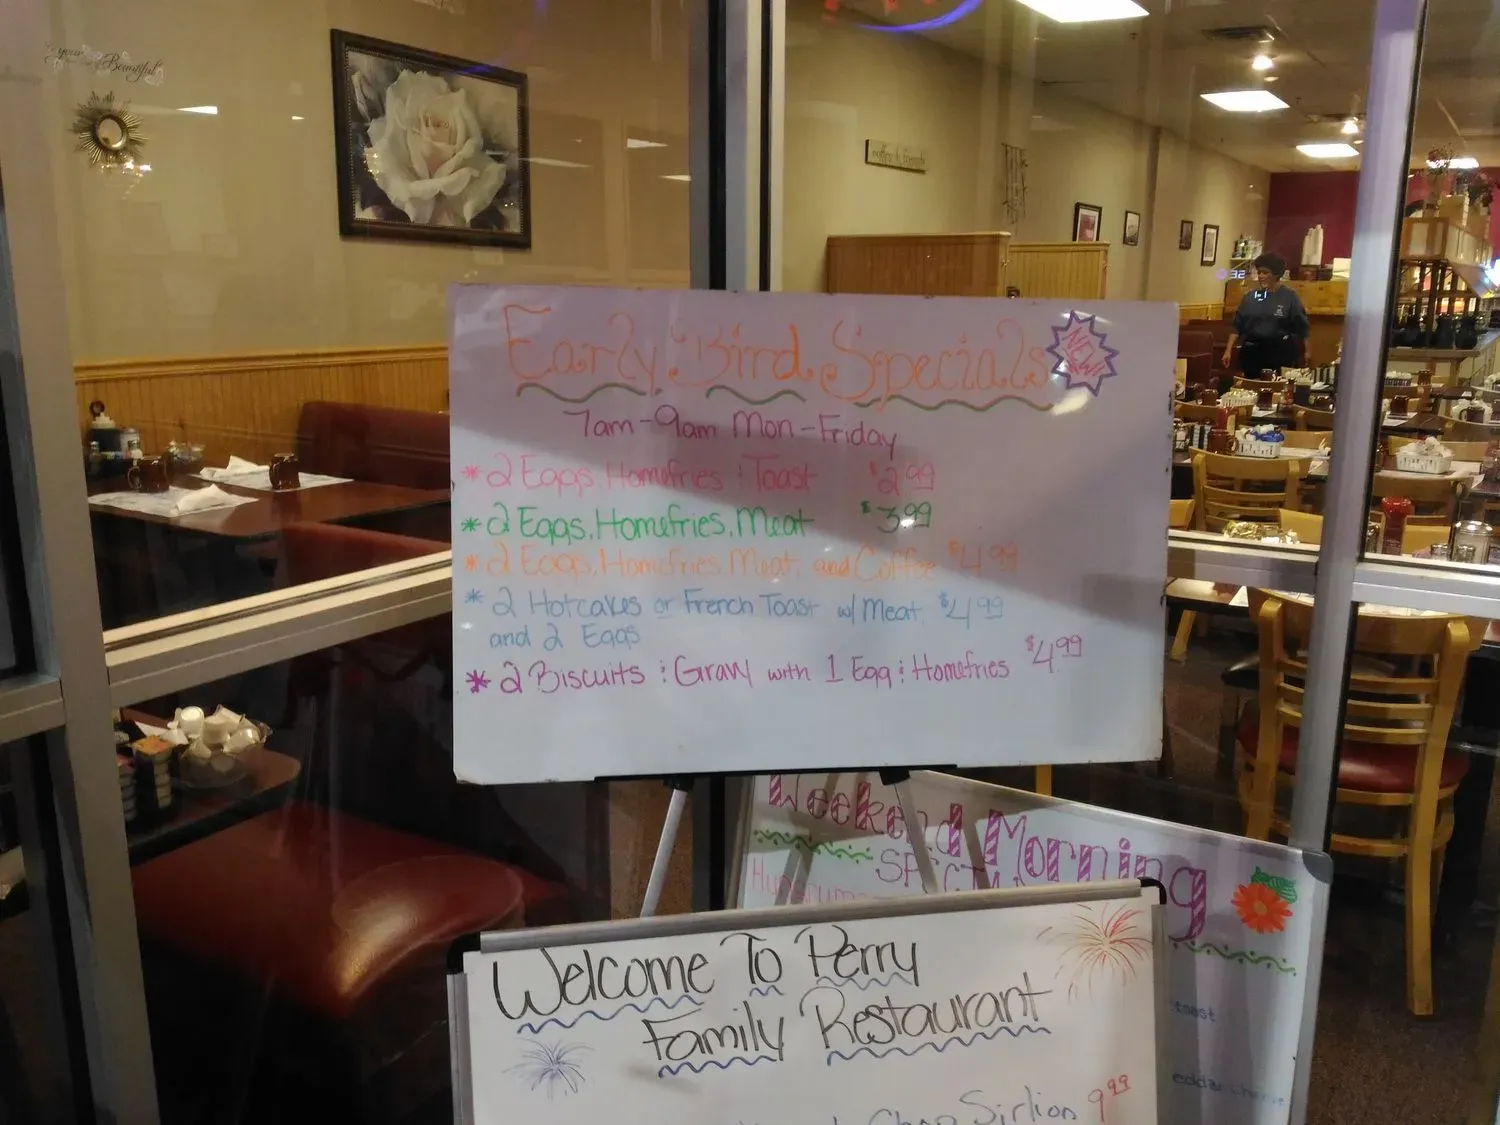 your Beautiful
Early Bird Specials
NEW
7am-9am Mon-Friday
* 2 Eggs, Homefries & Toast $2.99
* 2 Eggs, Homefries, Meat $3.99
* 2 Eggs, Homefries, Meat, and Coffee $4.99
* 2 Hotcakes or French Toast w/ Meat $4.99
and 2 Eggs
* 2 Biscuits & Gravy with 1 Egg & Homefries $4.99
Weekend Morning
toast
Welcome To Perry
Family Restaurant
Chop Sirlion 9.99